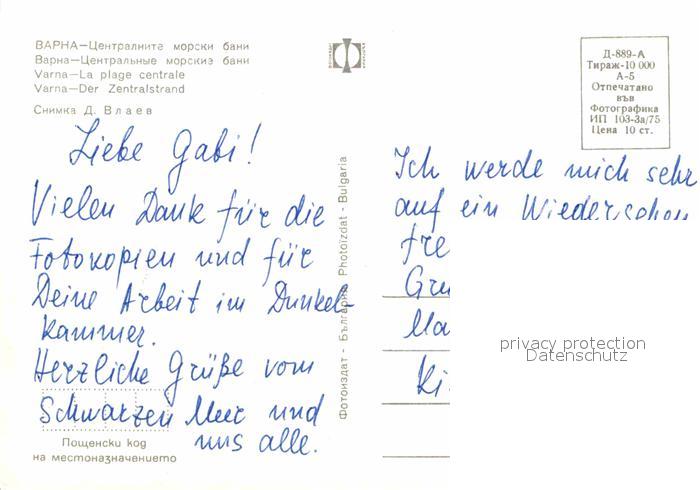 ВАРНА—Централните морски бани
Варна—Центральные морские бани
Varna—La plage centrale
Varna—Der Zentralstrand
Снимка Д. Влаев
Liebe Gabi!
Vielen Dank für die
Fotokopien und für
Deine Arbeit im Dunkel-
kammer.
Herzliche Grüße vom
Schwarzen Meer und
uns alle.
Пощенски код
на местоназначението
Фотоиздат - България Photoizdat - Bulgaria
Д-889-А
Тираж-10 000
А-5
Отпечатано
във
Фотографика
ИП 103-3а/75
Цена 10 ст.
Ich werde mich sehr
auf ein
fre
Gru
Ma
Ki
privacy protection
Datenschutz